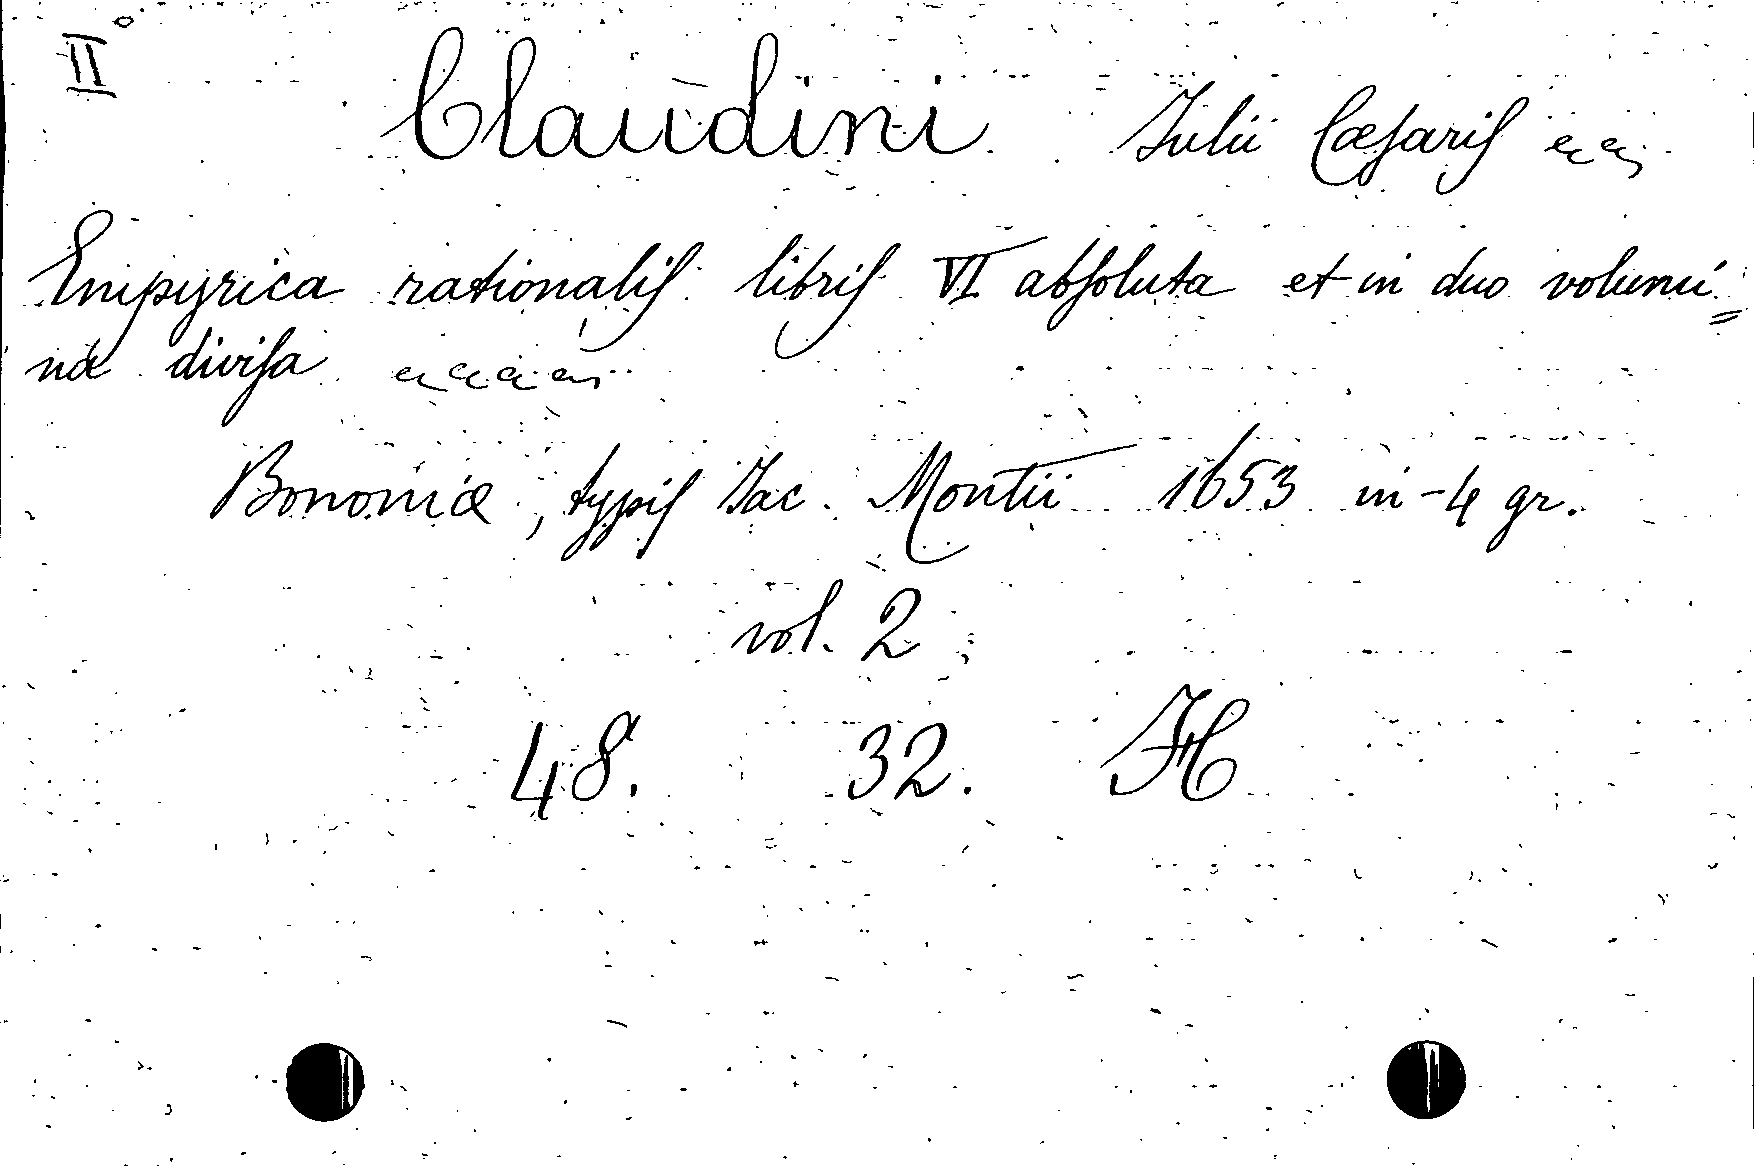 II°
Claudini Julii Cæsaris
Empyrica rationalis libris VI absoluta et in duo volumi=
na divisa
Bononiæ, typis Jac. Montii 1653 in-4 gr.
vol. 2
48. 32. H